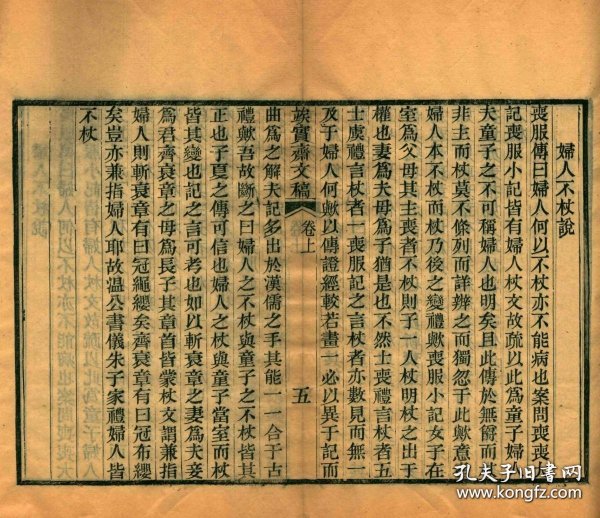 婦人不杖說
喪服傳曰婦人何以不杖亦不能病也案問喪喪大
記喪服小記皆有婦人杖文故疏以此為童子婦
夫童子之不可稱婦人也明矣且此傳於無爵而
非主而杖莫不條列而詳辨之而獨忽于此歟意
婦人本不杖而杖乃後之變禮歟喪服小記女子在
室為父母其主喪者不杖則子一人杖明杖之出于
權也妻為夫母為子猶是也不然士喪禮言杖者五
士虞禮言杖者一喪服記之言杖者亦數見而無一
及于婦人何歟以傳證經較若畫一必以異于記而
埃實齋文稿
卷上
五
曲為之解夫記多出於漢儒之手其能一一合于古
禮歟吾故斷之曰婦人之不杖與童子之不杖皆其
正也子夏之傳可信也婦人之杖與童子當室而杖
皆其變也記之言可考也如以斬衰章之妻為夫妾
為君齊衰章之母為長子其章首皆蒙杖文謂兼指
婦人則斬衰章有曰冠繩纓矣齊衰章有曰冠布纓
矣豈亦兼指婦人耶故溫公書儀朱子家禮婦人皆
不杖
孔夫子旧书网
www.kongfz.com